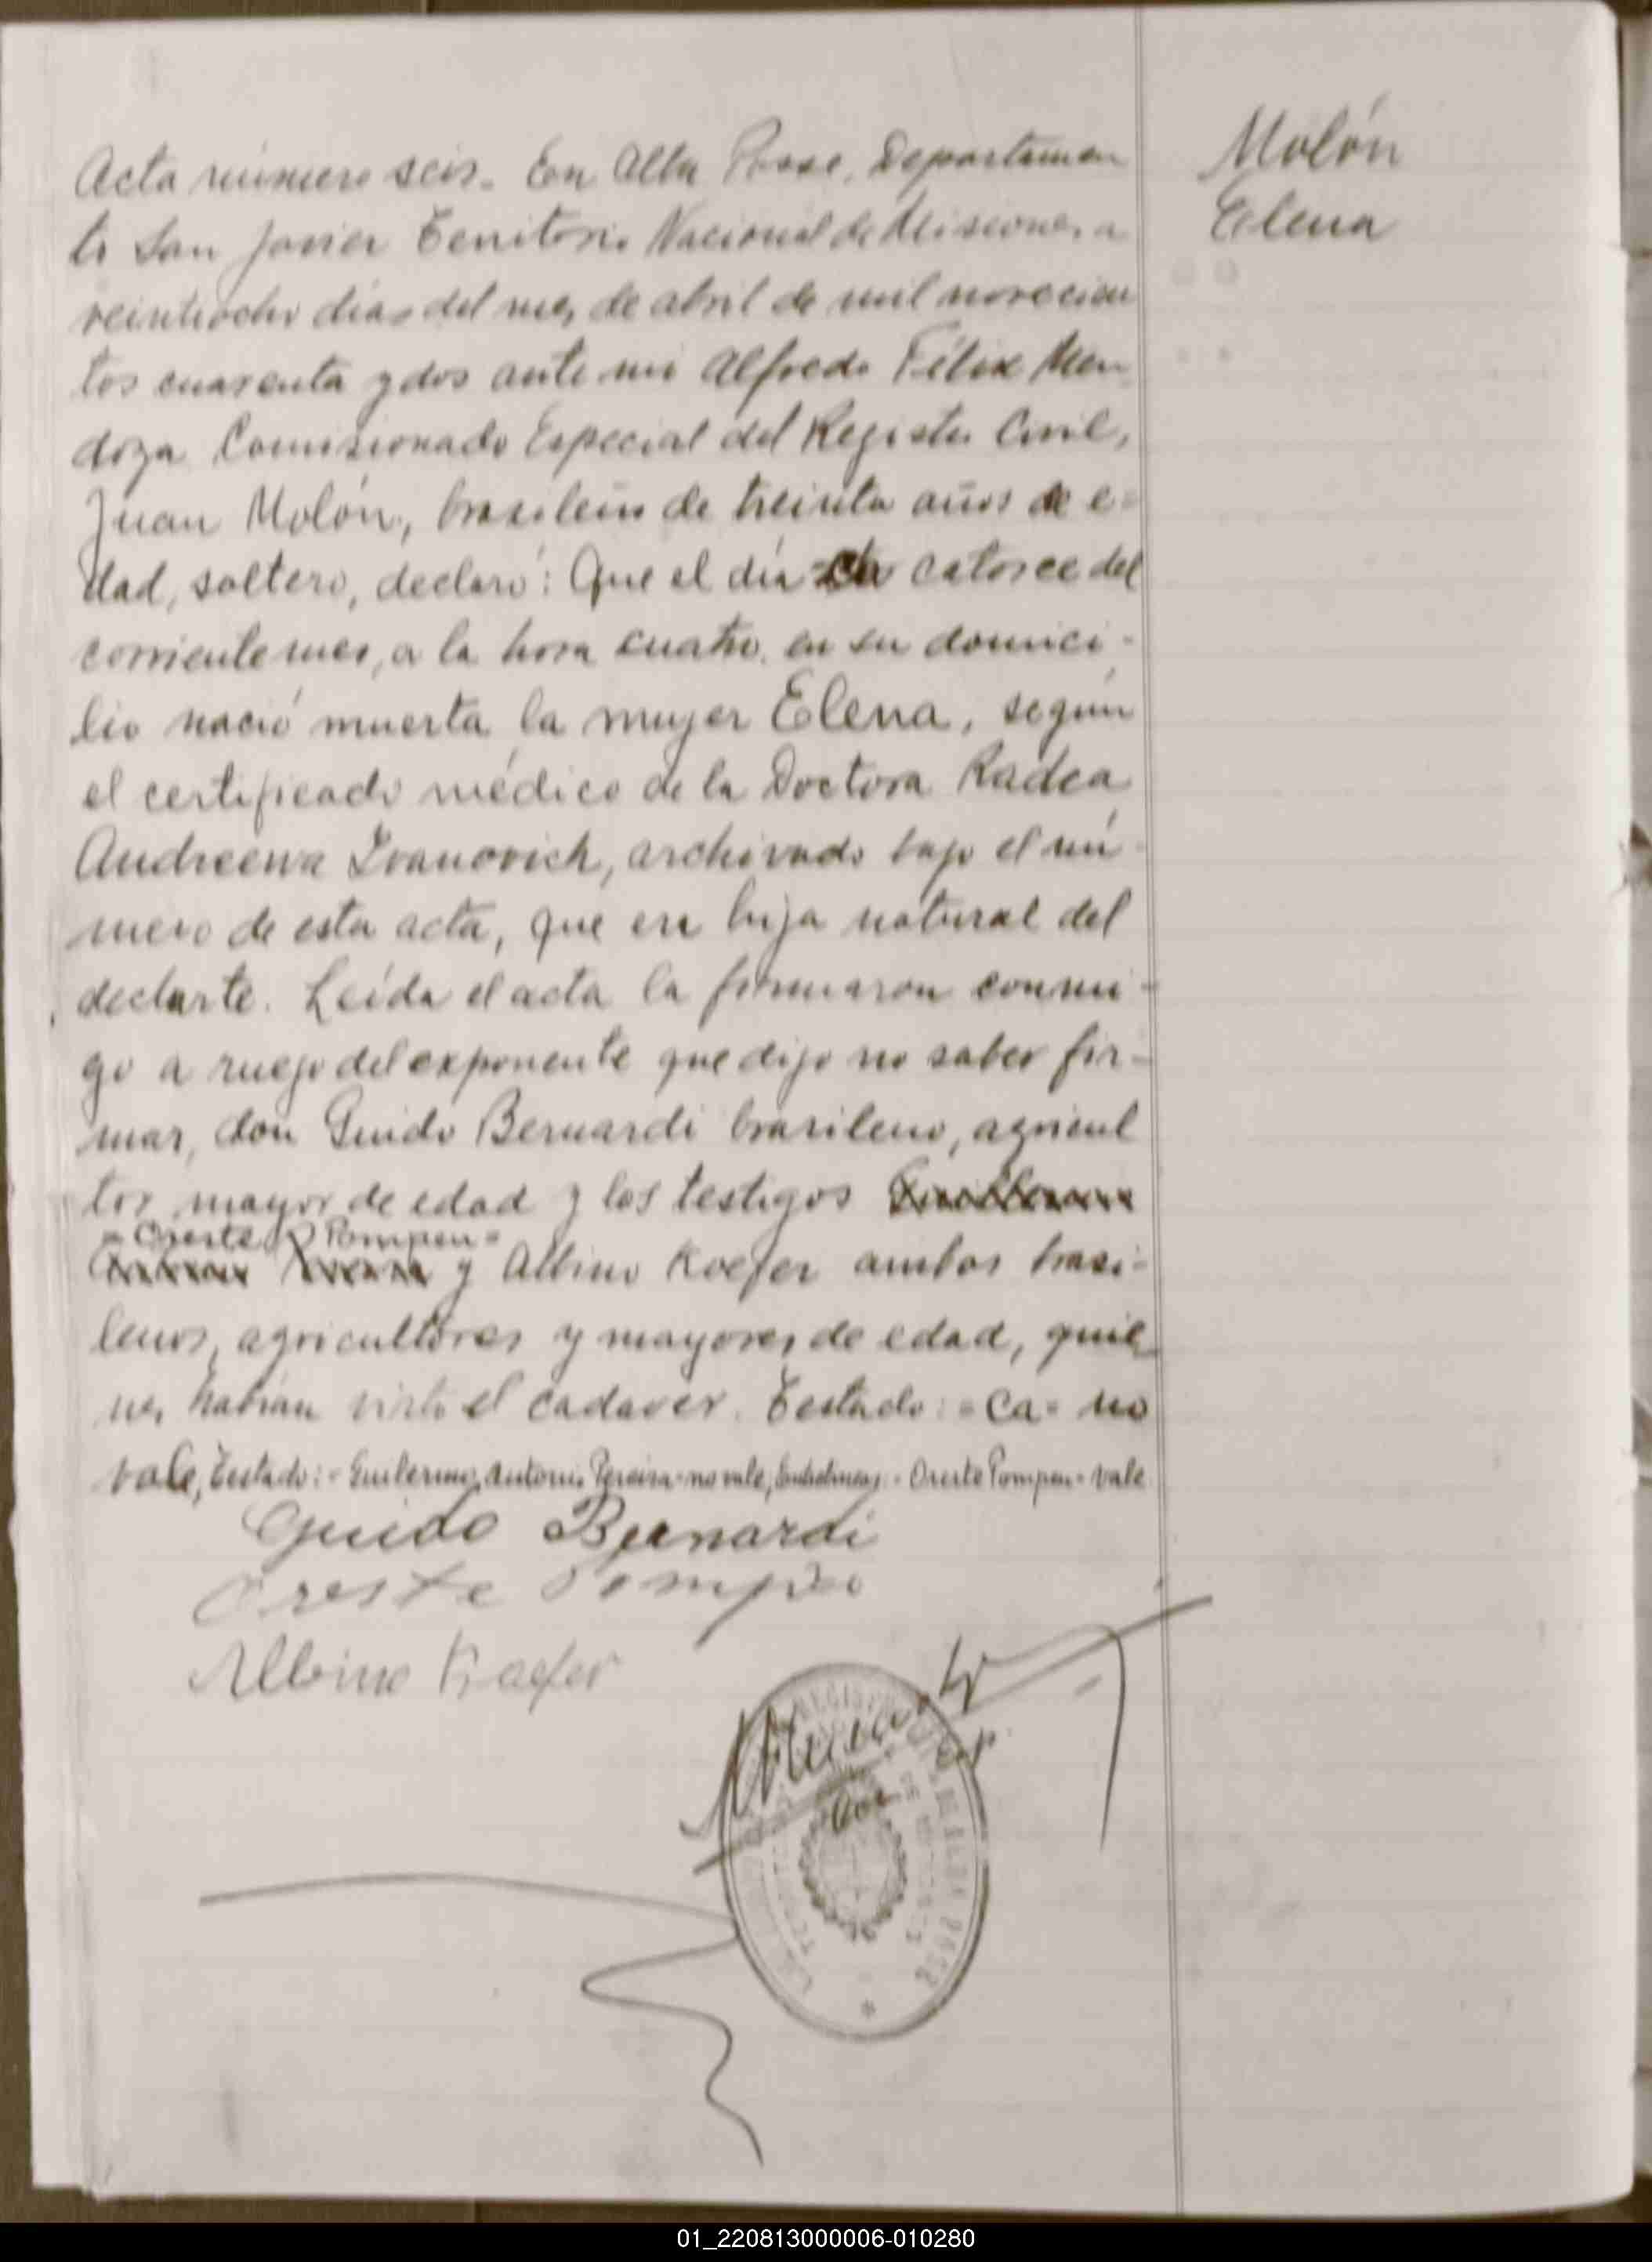 Molón
Elena
Acta número seis. En Alba Posse, Departamen
to San Javier Territorio Nacional de Misiones, a
veintiocho días del mes de abril de mil novecien
tos cuarenta y dos ante mi Alfredo Félix Men
doza Comisionado Especial del Registro Civil,
Juan Molón, brasileño de treinta años de e-
dad, soltero, declaró: Que el día ca catorce del
corriente mes, a la hora cuatro, en su domici-
lio nació muerta la mujer Elena, según
el certificado médico de la Doctora Radea
Andreewa Ivanovich, archivado bajo el nú-
mero de esta acta, que era hija natural del
declarte. Leída el acta la firmaron conmi-
go a ruego del exponente que dijo no saber fir-
mar, don Guido Bernardi brasileno, agricul
tor mayor de edad y los testigos
=Oreste Pompeu=
y Albino Koefer ambos brasi-
lenos, agricultores y mayores de edad, quie
nes habían visto el cadaver. Testado: =ca= no
vale, Testado: =Guilermo, Antonio Pereira= no vale, Entrelineas: =Oreste Pompeu= vale
Guido Bernardi
Oreste Pompeo
Albino Kaefer